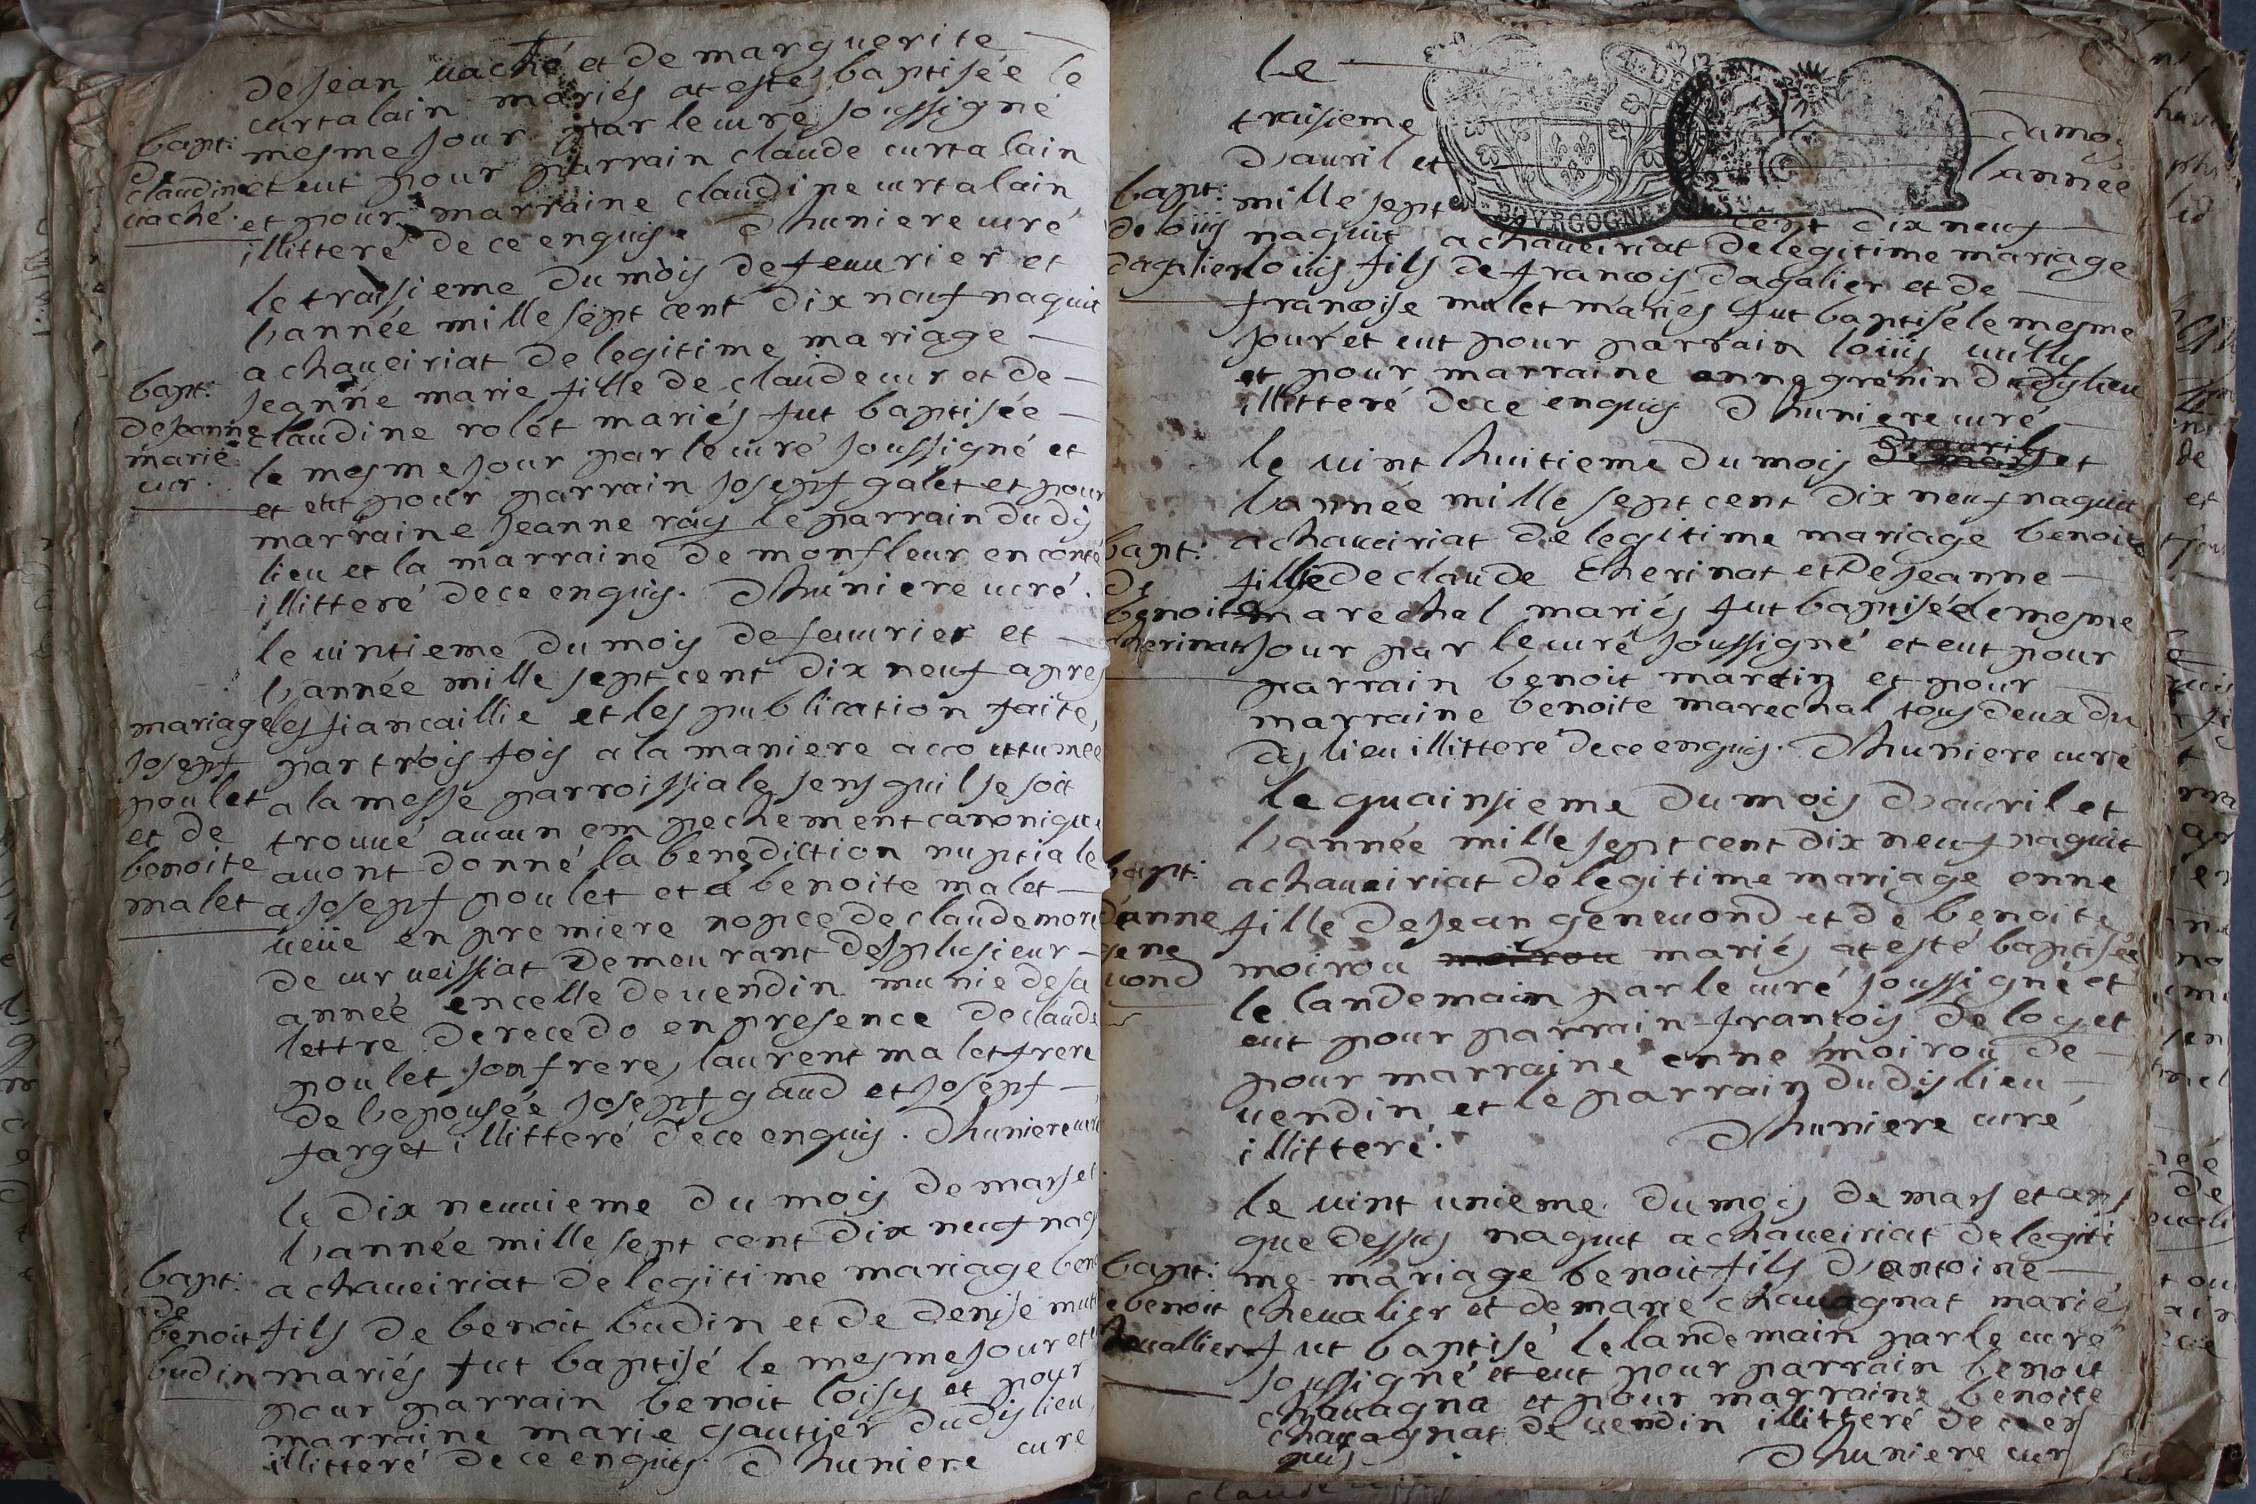 de jean vaché et de marguerite
curtalain mariés at esté baptisée le
mesme jour par le curé soussigné
bapt:
de
claudine
vaché.
et eut pour parrain claude curtalain
et pour marraine claudine curtalain
illitteré de ce enquis. Dhuniere curé
le traisieme du mois de feuurier et
l'année mille sept cent dix neuf naquit
a chaueiriat de legitime mariage
bapt:
de jeanne
marie
cur.
jeanne marie fille de claude cur et de
claudine rolet mariés fut baptisée
le mesme jour par le curé soussigné et
et eut pour parrain josepf galet et pour
marraine jeanne ray le parrain dudis
lieu et la marraine de monfleur en conté
illitteré de ce enquis. Dhuniere curé.
le vintieme du mois de feuurier et
l'année mille sept cent dix neuf apres
mariage
josepf
poulet
et de
benoite
malet
les fiancaillie et les publication faite,
par trois fois a la maniere accouttumée
a la messe parroissiale sens quil se soit
trouué aucun empechement canonique
auont donné la benediction nuptiale
a josepf poulet et a benoite malet
ueüe en premiere nopce de claude more
de curueissiat demeurant desplusieur
année en celle de uendin munie de sa
lettre de recedo en presence de claude
poulet son frere, laurent malet frere
de l'epousée josepf gaud et josepf
farget illitteré de ce enquis. Dhuniere curé
le dix neuuieme du mois de mars et
l'année mille sept cent dix neuf naq
bapt:
de
benoit
budin
a chaueiriat de legitime mariage ben
fils de benoit budin et de denise mut
mariés fut baptisé le mesme jour et
pour parrain benoit loisy et pour
marraine marie gautier dudis lieu,
illitteré de ce enquis. Dhuniere curé
le
traisieme du mois
d'auril et l'année
BOVRGOGNE
bapt:
de loüis
dagalier
mille sept cent dix neuf
naquit a chaueiriat de legitime mariage
loüis fils de francois dagalier et de
francoise malet mariés fut baptisé le mesme
jour et eut pour parrain loüis
et pour marraine anne grenin dudis lieu
illitteré de ce enquis Dhuniere curé
le vint huitieme du mois d'auril et
l'année mille sept cent dix neuf naquit
bapt:
de
benoite
therinat
a chaueiriat de legitime mariage benoite
fille de claude therinat et de jeanne
marechal mariés fut baptisée le mesme
jour par le curé soussigné et eut pour
parrain benoit martin et pour
marraine benoite marechal tous deux du
dis lieu illitteré de ce enquis. Dhuniere curé
le quainsieme du mois d'auril et
l'année mille sept cent dix neuf naquit
bapt:
d'anne
gene
uond
a chaueiriat de legitime mariage enne
fille de jean geneuond et de benoite
moirou moirou mariés at esté baptisée
le landemain par le curé soussigné et
eut pour parrain francois deloy et
pour marraine enne moirou de
uendin et le parrain dudis lieu
illitteré. Dhuniere curé
le vint unieme du mois de mars et ans
que dessus naquit a chaueiriat de legiti
bapt:
de benoit
cheuallier
me mariage benoit fils d'antoine
cheualier et de marie chauagnat mariés
fut baptisé le landemain par le curé
soussigné et eut pour parrain benoit
chauagna et pour marraine benoite
chauagnat de uendin illitteré de ce en
quis Dhuniere cur